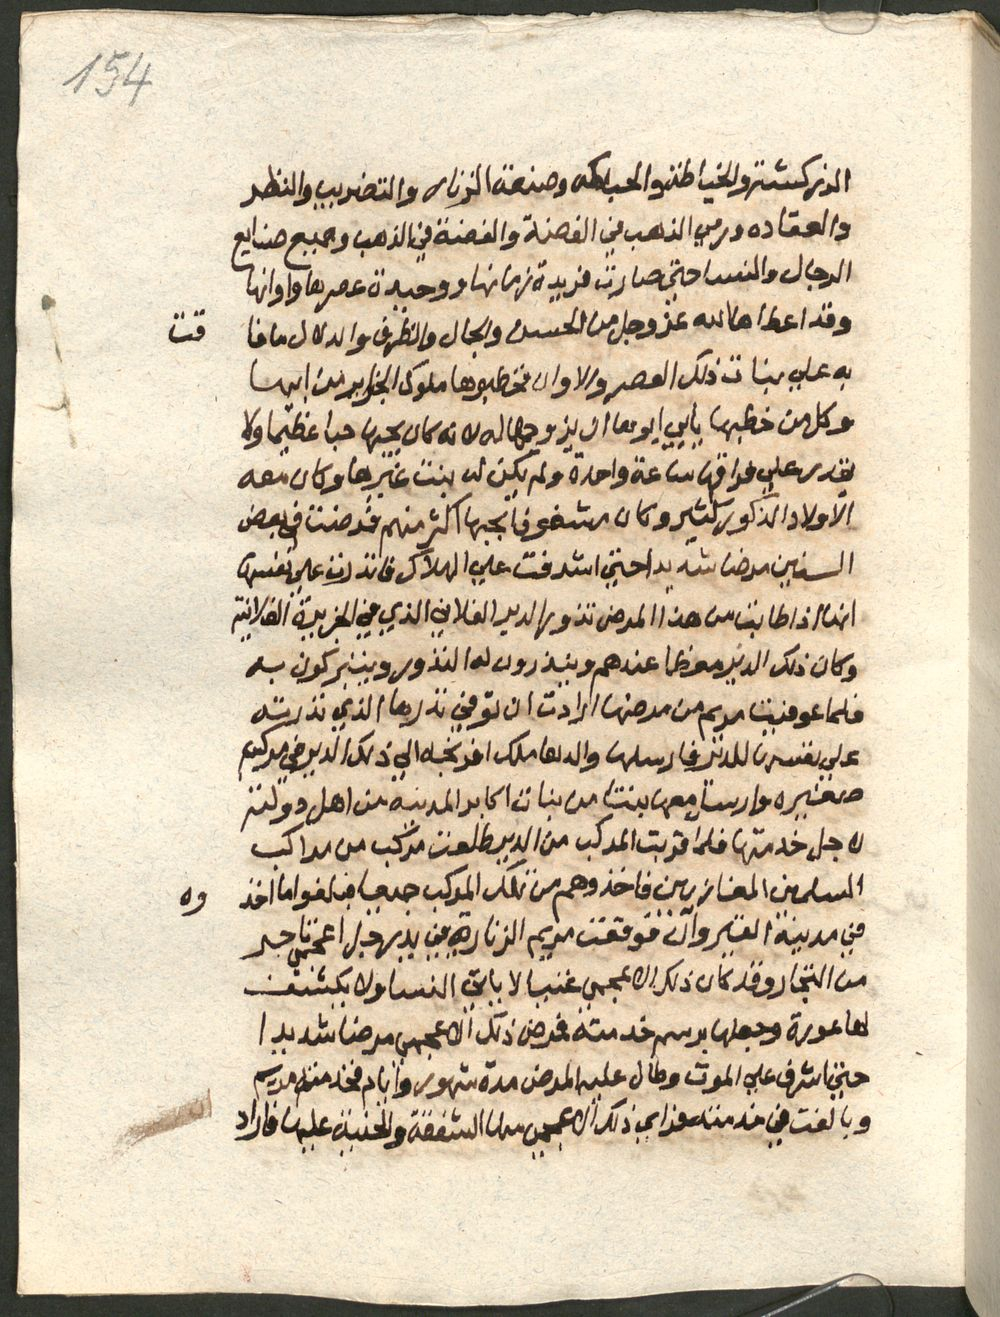 154
الزركشة والخياطة والحباكه وصنعة الزنار والتضريب والنظر
والعقاده ورمي الذهب في الفضة والفضة في الذهب وجميع صنايع
الرجال والنسا حتي صارت فريدة زمانها ووحيدة عصرها واوانها
وقد اعطاها الله عز وجل من الحسن والجمال والظرف والدلال ما فا قت
به علي بنات ذلك العصر والاوان فخطبوها ملوك الجزاير من ابيها
وكل من خطبها يأبي ابوها ان يزوجها له لانه كان يحبها حبا عظيما ولا
يقدر علي فراقها ساعة واحدة ولم يكن له بنت غيرها وكان معه
الاولاد الذكور كثير وكان مشغوفا بحبها اكثر منهم فمرضت في بعض
السنين مرضا شديدا حتي اشرفت علي الهلاك فانذرت علي نفسها
انها اذا طابت من هذا المرض تزور الدير الفلاني الذي في الجزيرة الفلانية
وكان ذلك الدير معظما عندهم وينذرون له النذور ويتبركون به
فلما عوفيت مريم من مرضها ارادت ان توفي نذرها الذي نذرته
علي نفسها للدير فارسلها والدها ملك افرنجه الي ذلك الدير في مركب
صغيره وارسل معها بنتا من بنات اكابر المدينه من اهل دولته
لاجل خدمتها فلما قربت المركب من الدير طلعت مركب من مراكب
المسلمين المغازيين فاخذوهم من تلك المركب جميعا فباعوا ما اخذ وه
في مدينة القيروان فوقعت مريم الزنارية في يد رجل اعجمي تاجر
من التجار وقد كان ذلك الاعجمي عنينا لا ياتي النسا ولا يكشف
لها عورة وجعلها برسم خدمته فمرض ذلك الاعجمي مرضا شديدا
حتي اشرف علي الموت وطال عليه المرض مدة شهور وايام فخدمته مريم
وبالغت في خدمته فراي ذلك الاعجمي منها الشفقة والحنية عليها فاراد